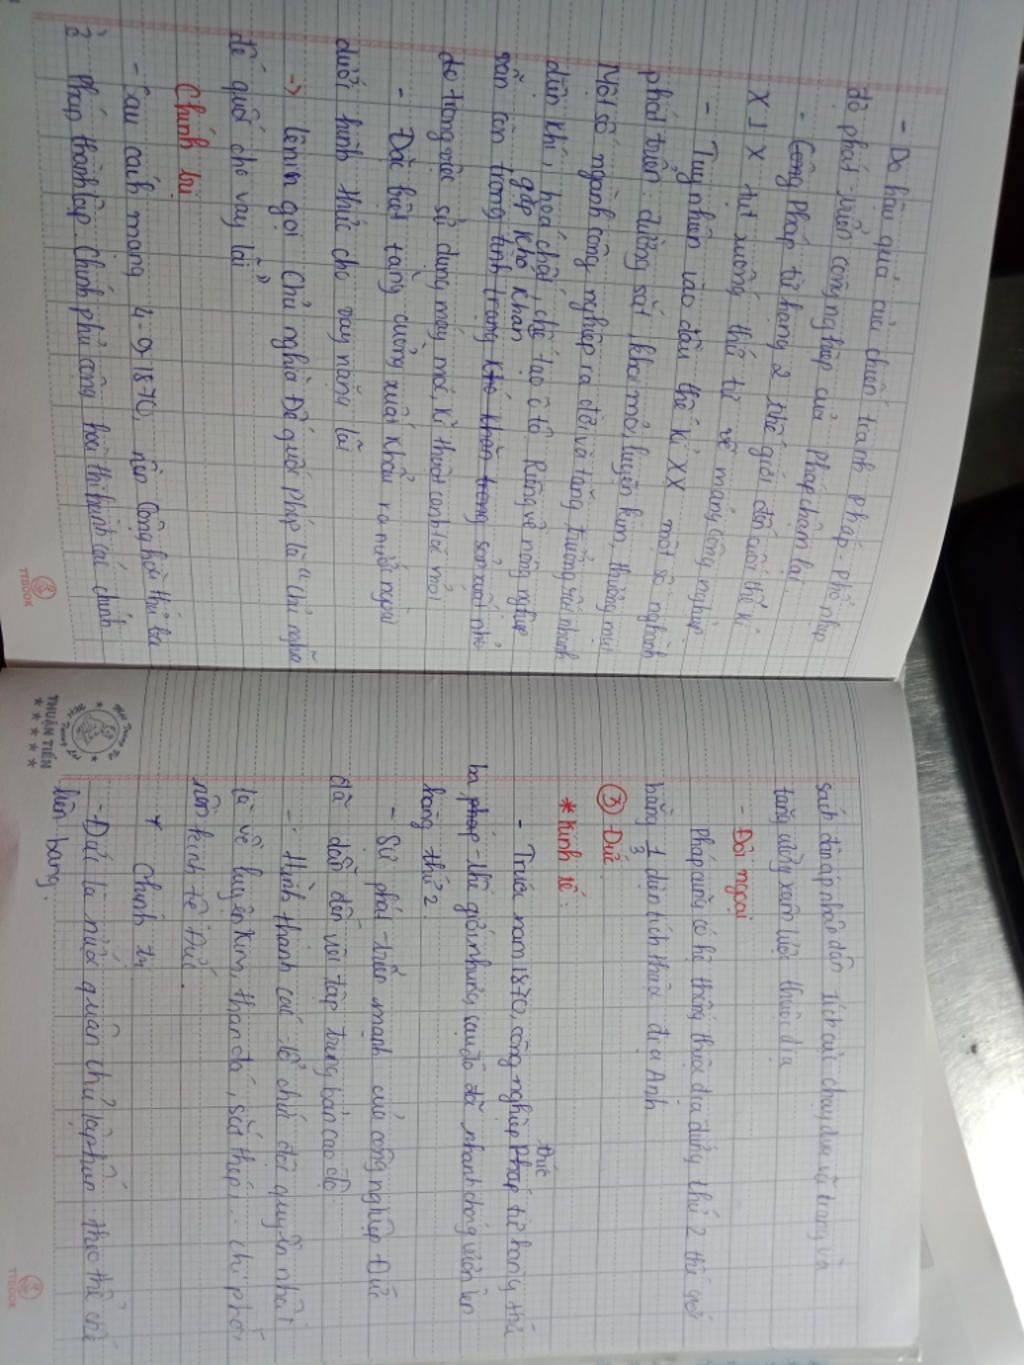 - Do hậu quả của chiến tranh Pháp - Phổ nhịp
độ phát triển công nghiệp của Pháp chậm lại.
- Công Pháp từ hàng 2 thế giới đến cuối thế kỉ
XIX tụt xuống thứ tư về mảng công nghiệp.
- Tuy nhiên vào đầu thế kỉ XX một số nghành
phát triển: đường sắt, khai mỏ, luyện kim, thương mại
Một số ngành công nghiệp ra đời và tăng trưởng rất nhanh
điện khí, hoá chất, chế tạo ô tô. Riêng về nông nghiệp
gặp khó khăn
vẫn còn trong tình trạng khó khăn trong sản xuất nhỏ
do trong việc sử dụng máy móc, kĩ thuật canh tác mới
- Đặc biệt tăng cường xuất khẩu ra nước ngoài
dưới hình thức cho vay nặng lãi
-> Lênin gọi Chủ nghĩa Đế quốc Pháp là "Chủ nghĩa
đế quốc cho vay lãi"
Chính trị
- Sau cách mạng 4-9-1870, nền Cộng hoà thứ ba
ở Pháp thành lập. Chính phủ cộng hoà thi hành các chính
TTBOOK
sách đàn áp nhân dân tích cực chạy đua vũ trang và
tăng cường xâm lược thuộc địa
- Đối ngoại
Pháp cuối có hệ thống thuộc địa đứng thứ 2 thế giới
bằng 1/3 diện tích thuộc địa Anh
③ Đức
* Kinh tế:
- Trước năm 1870, công nghiệp Pháp từ hàng thứ
Đức
ba Pháp thế giới nhưng sau đó đã nhanh chóng vươn lên
hàng thứ 2.
- Sự phát triển mạnh của công nghiệp Đức
đã dẫn đến với tập trung bản cao độ
- Hình thành các tổ chức độc quyền nhất
là về luyện kim, than đá, sắt thép,... chi phối
nền kinh tế Đức.
* Chính trị
- Đức là nước quân chủ lập hiến theo thể chế
liên bang.
THUẬN TIẾN
TTBOOK